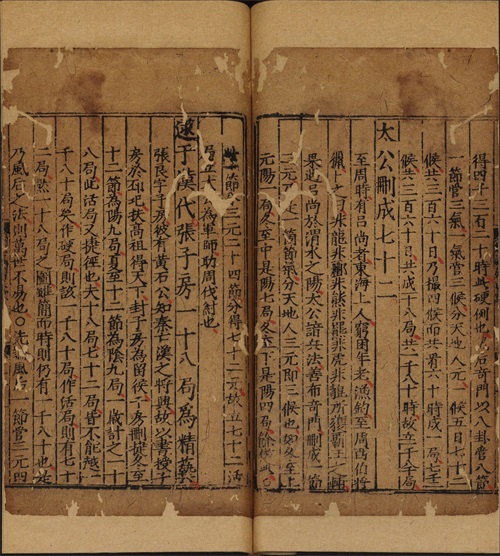 得四千三百二十時此硬例也奇門以八卦管八節
一節管三氣一氣管三候分天地人元一候五日七十二
候共三百六十日乃攝四候而共有六十時成一局七十二
候共三百六十日共成一十八局共一千八十時故立一千八十局
太公刪成七十二
至周時有呂尚者東海上人窮困年老漁釣至周西伯將
獵卜之曰非龍非彲非熊非羆非虎非貔所獲霸王之輔
果遇呂尚於渭水之陽太公諳兵法善布奇門刪成一節
三元乃之一箇節氣分天地人三元即三候也如冬至上
元陽一局冬至中是陽七局冬至下是陽四局餘倣此
一節三元二十四節分得七十二元故立七十二活
局立太公為軍師助周伐紂也
逮于漢代張子房一十八局為精藝
張良字子房彼有黃石公知秦亡漢之將興故以書授子
房於圯扶高祖得天下封子房為留侯子房刪捷冬至
十二節為陽九局夏至十二節為陰九局一歲計之一十
八局此活局又捷徑也夫十八局七十二局皆不能越一
千八十局矣作硬局則該一千八十局作活局則有七十
二局然一十八局之圖雖簡而時則仍有一千八十也此
乃風后之法則萬世不易也○先風后一節管三元四